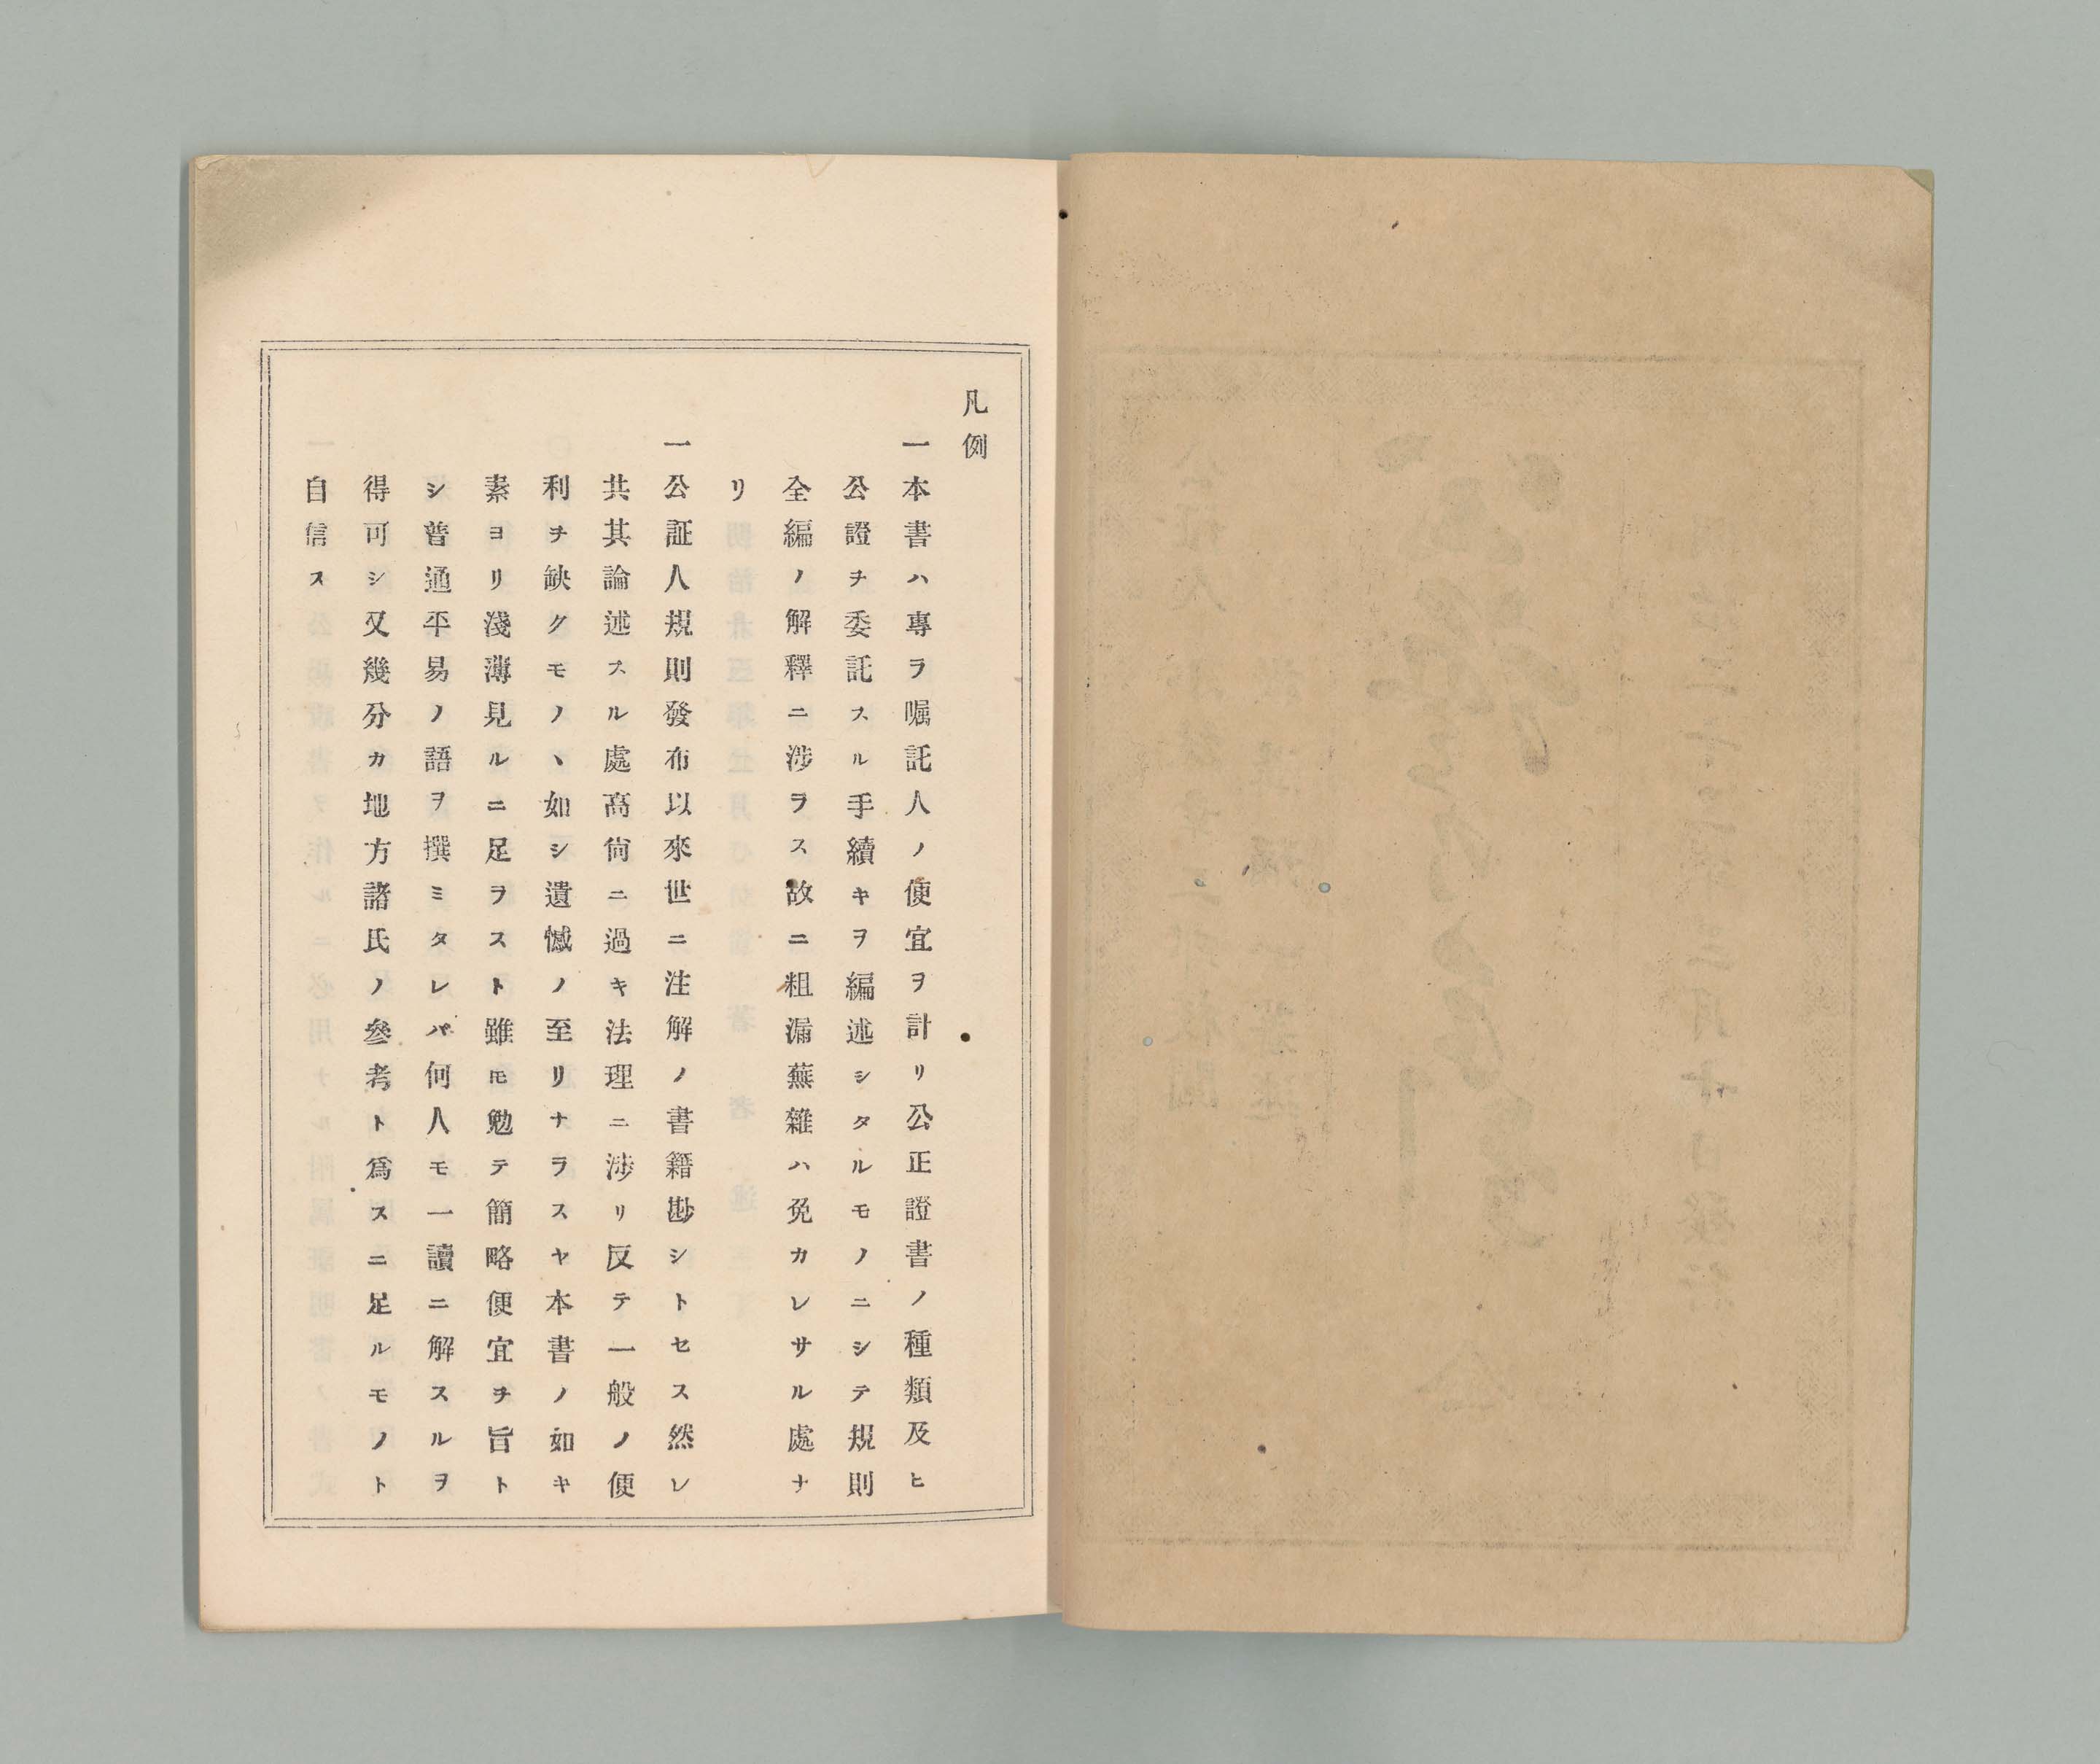 凡例
一本書ハ專ラ囑託人ノ便宜ヲ計リ公正證書ノ種類及ヒ
公證チ委託スル手續キヲ編述シタルモノニシテ規則
全編ノ解釋ニ涉ラス故ニ粗漏蕪雜ハ免カレサル處ナ
リ
一公証人規則發布以來世ニ注解ノ書籍尠シトセス然レ
共其論述スル處高尙ニ過キ法理ニ涉リ反テ一般ノ便
利チ缺クモノヽ如シ遺憾ノ至リナラスヤ本書ノ如キ
素ヨリ淺薄見ルニ足ヲスト雖モ勉テ簡略便宜チ旨ト
シ普通平易ノ語ヲ撰ミタレバ何人モ一讀ニ解スルヲ
得可シ又幾分カ地方諸氏ノ參考ト爲スニ足ルモノト
自信ス